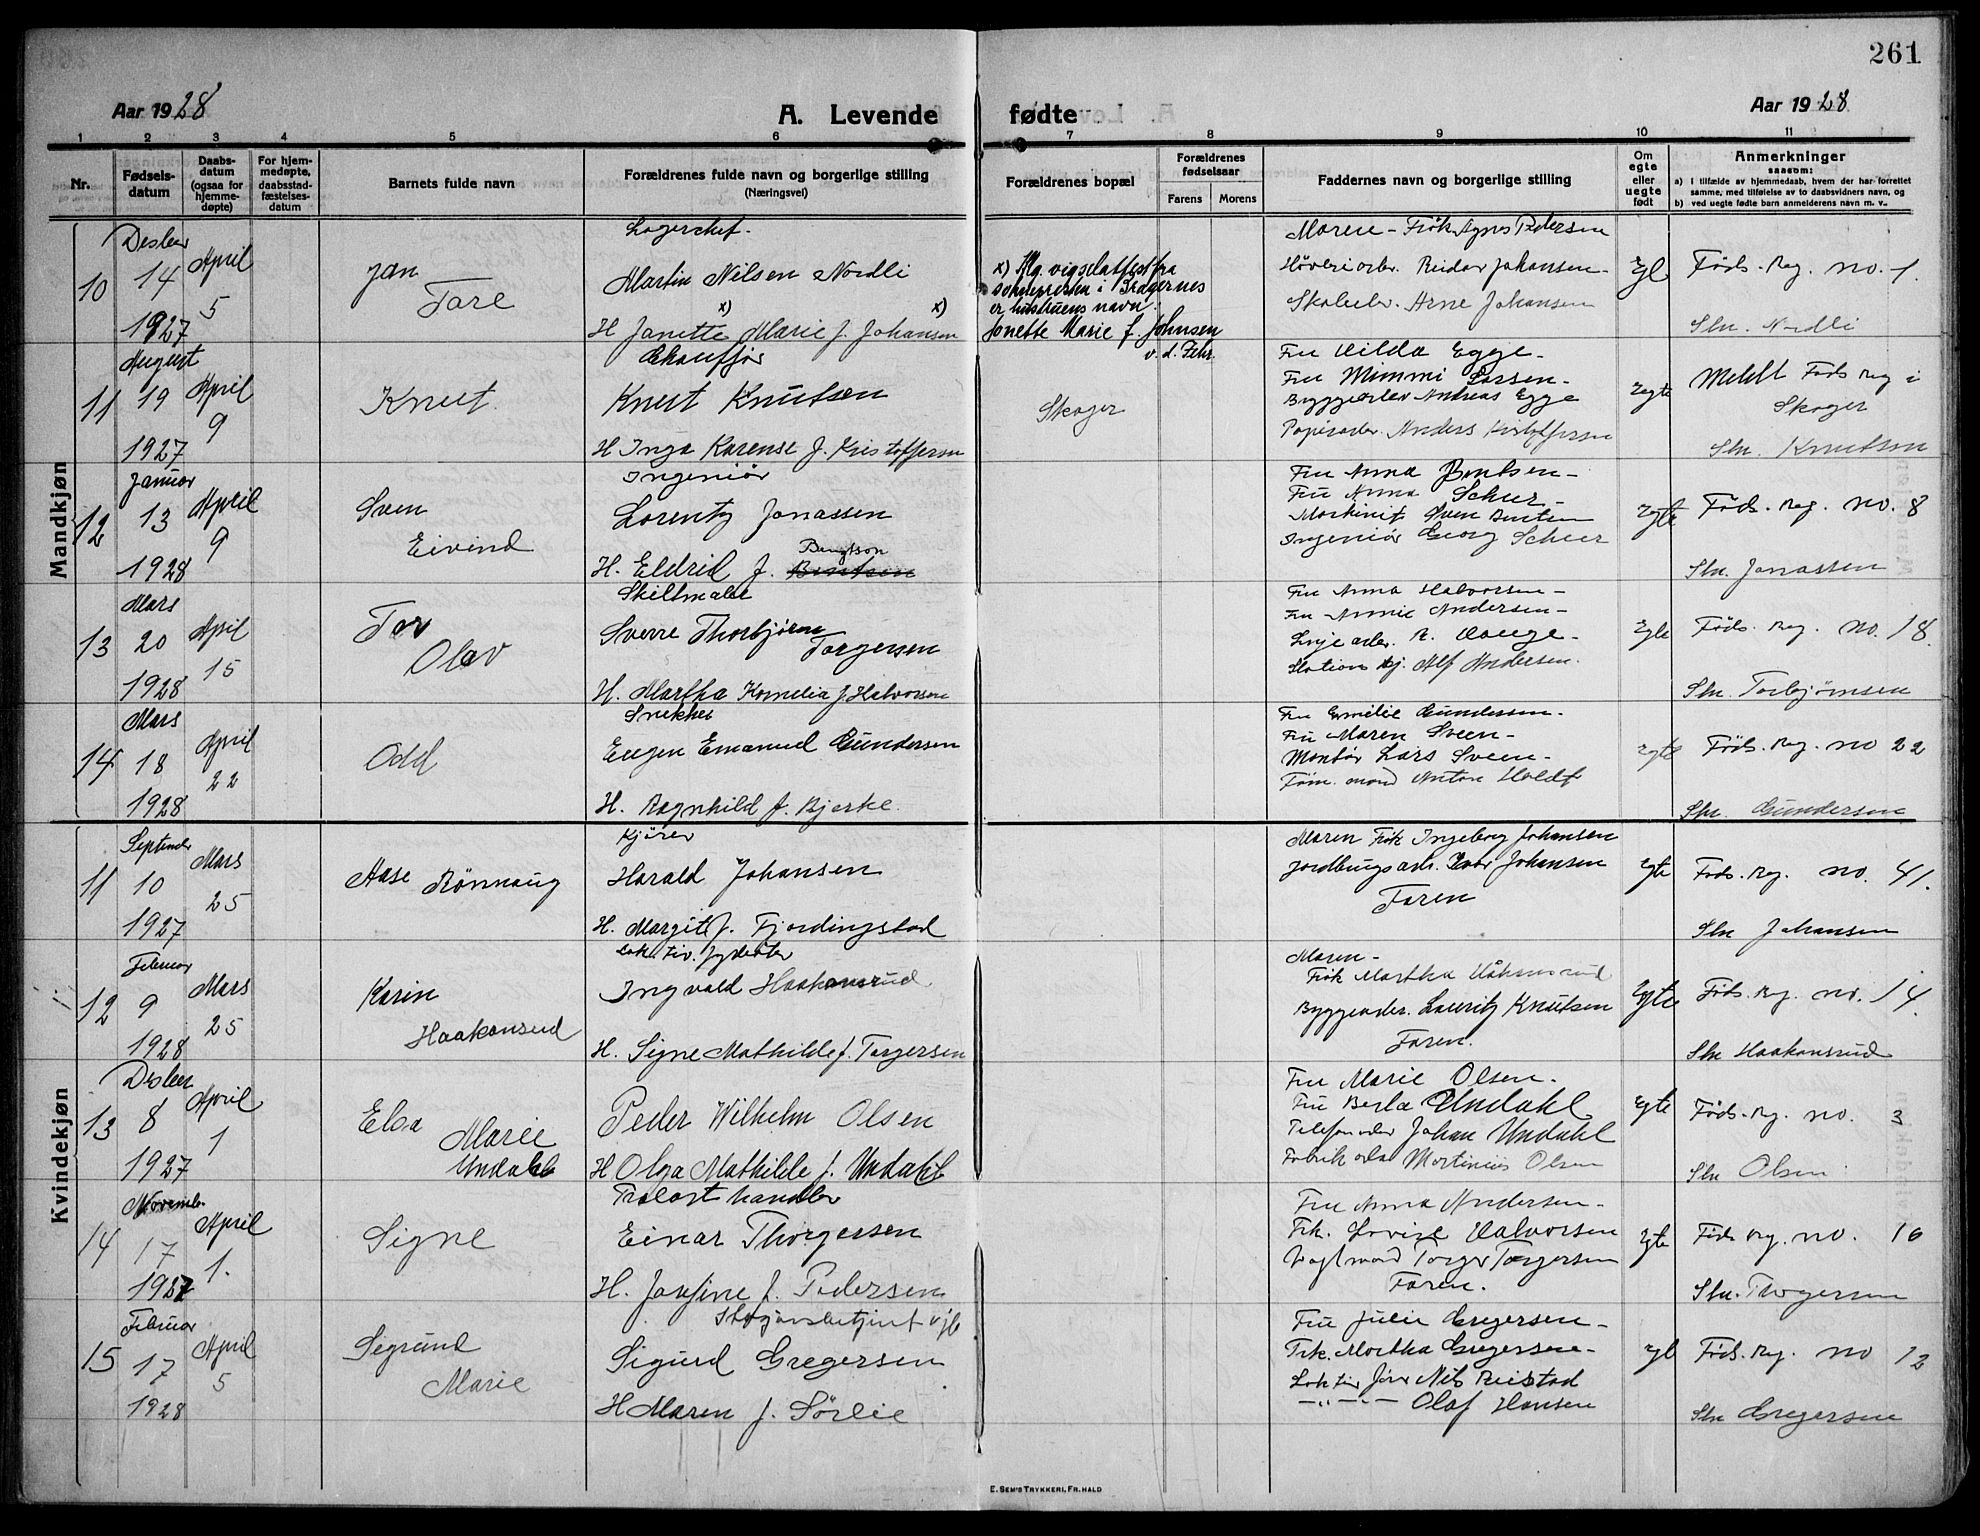 261
Aar 1928
A. Levende
fødte
Aar 1928
1 2 3 4 5 6 7 8 9 10 11
Nr.
Fødsels-
datum
Daabs-
datum
(ogsaa for
hjemme-
døpte)
For hjem-
medøpte,
daabsstad-
fæstelses-
datum
Barnets fulde navn
Forældrenes fulde navn og borgerlige stilling
(Næringsvei)
Forældrenes bopæl
Forældrenes
fødselsaar
Farens
Morens
Faddernes navn og borgerlige stilling
Om
egte
eller
uegte
født
Anmerkninger
saasom:
a) I tilfælde av hjemmedaab, hvem der har forrettet
samme, med tilføielse av to daabsvidners navn, og
b) ved uegte fødte barn anmelderens navn m. v..
Mandkjøn
10
Desber
14
1927
April
5
Jan
Tore
Lagerchef.
Martin Nilsen Nordli
x) x)
H Janette Marie f. Johansen
x) Flg. vigselattest fra
sognepresten i Skogernes
er hustruens navn:
Jonette Marie f. Johnsen
v. d. Fehr.
Moren - Frøk. Agnes Pedersen
Høveriarb. Reidar Johansen -
Skoleelev. Arne Johansen
Egt
Føds. Reg. no. 1.
Sln. Nordli
11
August
19
1927
April
9
Knut
Chauffør
Knut Knutsen
H Inga Karense f. Kristoffersen
Skoger
Fru Hilda Egge -
Fru Mimmi Larsen -
Byggearbr Andreas Egge
Papirarbr. Anders Kristoffersen
Egte
Meldt Føds reg i
Skoger
Sln. Knutson
12
Januar
13
1928
April
9
Sven
Eivind
Ingeniør
Lorentz Jonassen
Bengtson
H. Eldrid f. Bentsen
Fru Anna Bentsen -
Fru Anna Scheer -
Maskinist Sven Bentsen
Ingeniør Georg Scheer
Egte
Føds. Reg. no. 8
Sln. Jonassen
13
Mars
20
1928
April
15
Tor
Olav
Skiltmaler
Sverre Thorbjørn
Torgersen
H. Martha Kornelia f. Halvorsen
Fru Anna Halvorsen -
Fru Annie Andersen -
Linjearb. R. Hauge -
Stations bj. Alf Andersen.
Egte
Føds. Reg. no. 18.
Sln. Torbjørnsen
14
Mars
18
1928
April
22
Odd
Snekker
Eugen Emanuel Gundersen
H. Ragnhild f. Bjerke.
Fru Emilie Gundersen -
Fru Maren Sveen -
Montør Lars Sveen -
Tøm. mand Anton Holdt
Egte
Føds. Reg. no 22
Sln. Gundersen
Kvindekjøn
11
September
10
1927
Mars
25
Aase Rønnaug
Kjører
Harald Johansen
H. Margit f. Fjordingstad
Moren Frøk Ingeborg Johansen
Jordbrugsarb. Ivar Johansen
Faren
Egte
Føds. Reg. no. 41.
Sln Johansen
12
Februar
9
1928
Mars
25
Karin
Haakansrud
Lokotiv. fyrbøter
Ingvald Haakansrud
H. Signe Mathilde f. Torgersen
Moren -
Frøk Martha Håkansrud
Byggearbr. Lauritz Knutsen
Faren.
Egte
Føds. Reg. no. 14.
Sln Haakansrud
13
Desber
8
1927
April
1
Elsa Marie
Undahl
Peder Wilhelm Olsen
H Olga Mathilde f. Undahl
Fru Marie Olsen -
Fru Berta Undahl
Telefonarbr Johan Undahl
Fabrik arbr Martinius Olsen
Egte
Føds. Reg. no. 3
Sln Olsen
14
November
17
1927
April
1.
Signe
Trælasthandler
Einar Thorgersen
H. Josefine f. Pedersen
Fru Anna Andersen -
Frk. Lovise Halvorsen
Vogtmand Torger Torgersen
Faren.
Egte
Føds reg. no. 16
Sln. Thorgersen
15
Februar
17
1928
April
5
Sigrund
Marie
Stasjonsbetjent v/jb
Sigurd Gregersen
H Maren f. Sørlie
Fru Julie Gregersen -
Frk. Martha Gregersen -
Lok tiv før Nils Reistad
— „ — „ — Olaf Hansen
Egt
Føds. Reg. no 12
Sln Gregersen
E. SEM'S TRYKKERI, FR.HALD